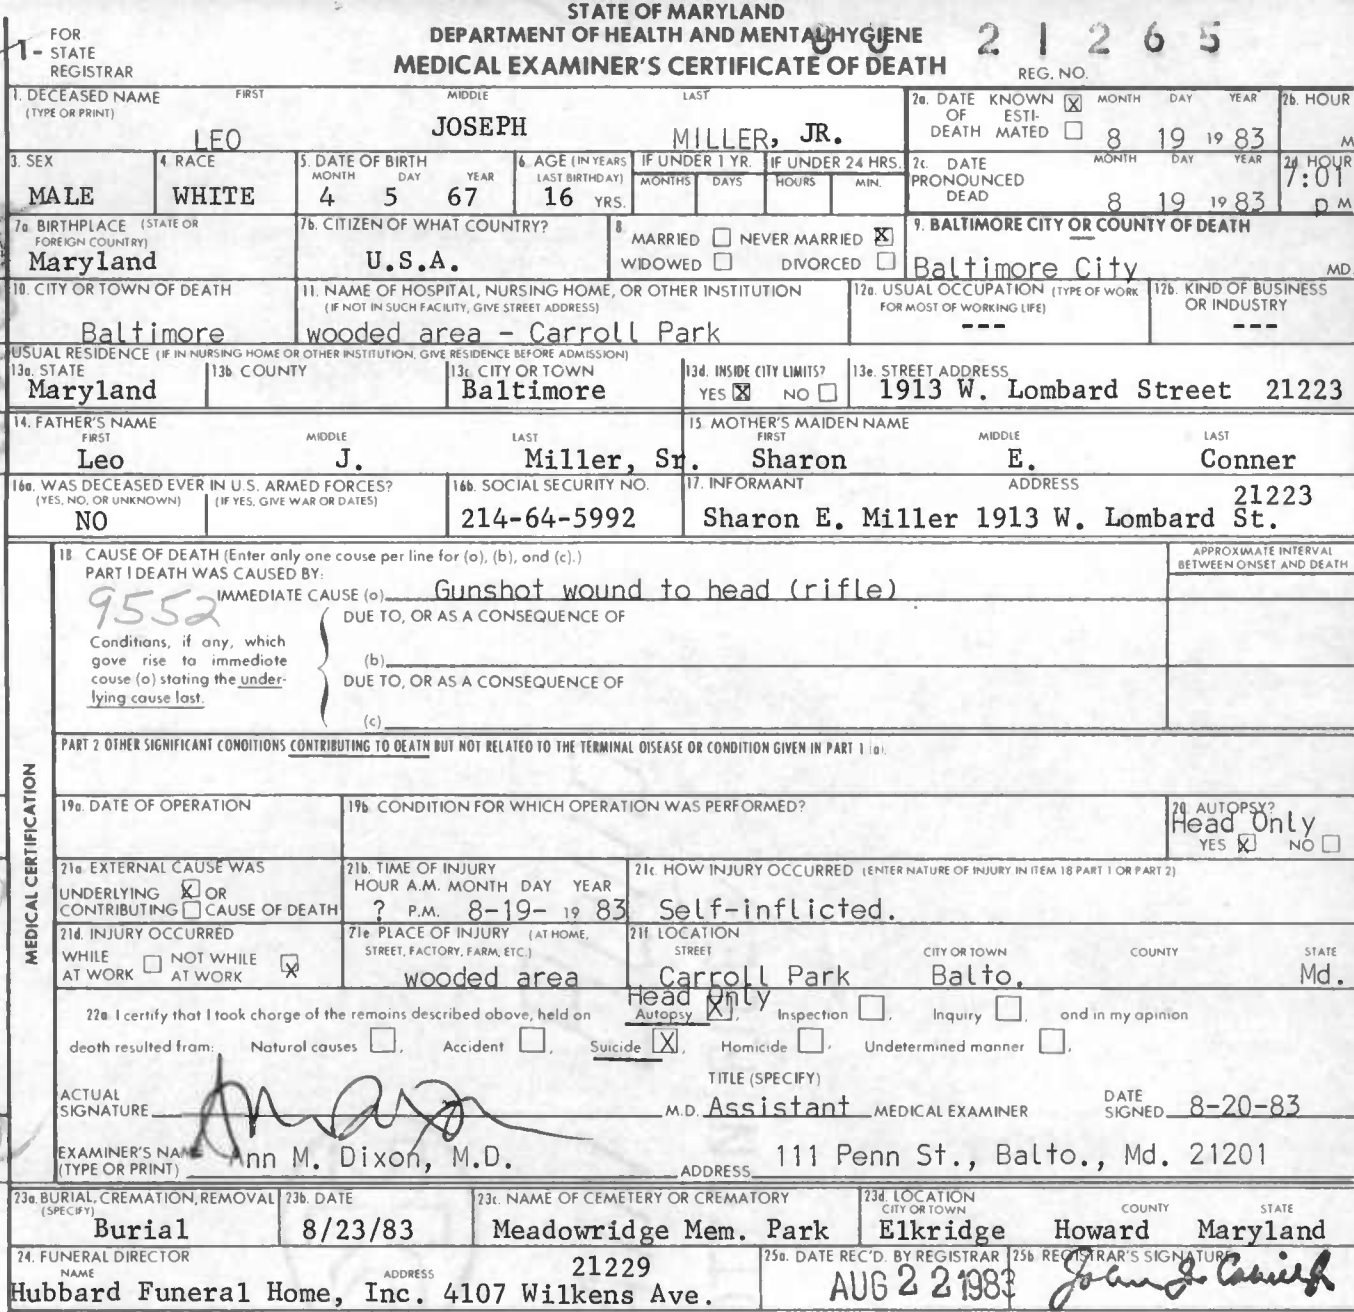 STATE OF MARYLAND
DEPARTMENT OF HEALTH AND MENTAL HYGIENE
MEDICAL EXAMINER'S CERTIFICATE OF DEATH
1- FOR STATE REGISTRAR
21265
REG. NO.
1. DECEASED NAME (TYPE OR PRINT) FIRST MIDDLE LAST
LEO JOSEPH MILLER, JR.
2a. DATE OF DEATH KNOWN X ESTIMATED MONTH DAY YEAR
8 19 1983
2b. HOUR M
3. SEX
MALE
4. RACE
WHITE
5. DATE OF BIRTH MONTH DAY YEAR
4 5 67
6. AGE (IN YEARS LAST BIRTHDAY)
16 YRS.
IF UNDER 1 YR. MONTHS DAYS
IF UNDER 24 HRS. HOURS MIN.
2c. DATE PRONOUNCED DEAD MONTH DAY YEAR
8 19 1983
2d HOUR
7:01 p M
7a. BIRTHPLACE (STATE OR FOREIGN COUNTRY)
Maryland
7b. CITIZEN OF WHAT COUNTRY?
U.S.A.
8. MARRIED NEVER MARRIED X
WIDOWED DIVORCED
9. BALTIMORE CITY OR COUNTY OF DEATH
Baltimore City MD.
10. CITY OR TOWN OF DEATH
Baltimore
11. NAME OF HOSPITAL, NURSING HOME, OR OTHER INSTITUTION
(IF NOT IN SUCH FACILITY, GIVE STREET ADDRESS)
wooded area - Carroll Park
12a. USUAL OCCUPATION (TYPE OF WORK FOR MOST OF WORKING LIFE)
---
12b. KIND OF BUSINESS OR INDUSTRY
---
USUAL RESIDENCE (IF IN NURSING HOME OR OTHER INSTITUTION, GIVE RESIDENCE BEFORE ADMISSION)
13a. STATE
Maryland
13b COUNTY
13c. CITY OR TOWN
Baltimore
13d. INSIDE CITY LIMITS?
YES X NO
13e. STREET ADDRESS
1913 W. Lombard Street 21223
14. FATHER'S NAME FIRST MIDDLE LAST
Leo J. Miller, Sr.
15. MOTHER'S MAIDEN NAME FIRST MIDDLE LAST
Sharon E. Conner
16a. WAS DECEASED EVER IN U.S. ARMED FORCES?
(YES, NO, OR UNKNOWN) (IF YES, GIVE WAR OR DATES)
NO
16b. SOCIAL SECURITY NO.
214-64-5992
17. INFORMANT ADDRESS
21223
Sharon E. Miller 1913 W. Lombard St.
MEDICAL CERTIFICATION
18 CAUSE OF DEATH (Enter only one cause per line for (a), (b), and (c).)
APPROXIMATE INTERVAL BETWEEN ONSET AND DEATH
PART I DEATH WAS CAUSED BY:
9552
IMMEDIATE CAUSE (a) Gunshot wound to head (rifle)
DUE TO, OR AS A CONSEQUENCE OF
Conditions, if any, which gave rise to immediate cause (a) stating the underlying cause last.
(b)
DUE TO, OR AS A CONSEQUENCE OF
(c)
PART 2 OTHER SIGNIFICANT CONDITIONS CONTRIBUTING TO DEATH BUT NOT RELATED TO THE TERMINAL DISEASE OR CONDITION GIVEN IN PART 1 (a).
19a. DATE OF OPERATION
19b CONDITION FOR WHICH OPERATION WAS PERFORMED?
20 AUTOPSY?
Head Only
YES X NO
21a EXTERNAL CAUSE WAS
UNDERLYING X OR
CONTRIBUTING CAUSE OF DEATH
21b. TIME OF INJURY
HOUR A.M. MONTH DAY YEAR
? P.M. 8-19- 19 83
21c. HOW INJURY OCCURRED (ENTER NATURE OF INJURY IN ITEM 18 PART 1 OR PART 2)
Self-inflicted.
21d. INJURY OCCURRED
WHILE AT WORK NOT WHILE AT WORK X
21e PLACE OF INJURY (AT HOME, STREET, FACTORY, FARM, ETC.)
wooded area
21f LOCATION STREET CITY OR TOWN COUNTY STATE
Carroll Park Balto. Md.
Head Only
22a I certify that I took charge of the remains described above, held on Autopsy X, Inspection, Inquiry, and in my opinion
death resulted from: Natural causes, Accident, Suicide X, Homicide, Undetermined manner.
ACTUAL SIGNATURE
TITLE (SPECIFY)
M.D. Assistant MEDICAL EXAMINER
DATE SIGNED 8-20-83
EXAMINER'S NAME (TYPE OR PRINT) Ann M. Dixon, M.D.
ADDRESS 111 Penn St., Balto., Md. 21201
23a. BURIAL, CREMATION, REMOVAL (SPECIFY)
Burial
23b. DATE
8/23/83
23c. NAME OF CEMETERY OR CREMATORY
Meadowridge Mem. Park
23d. LOCATION CITY OR TOWN COUNTY STATE
Elkridge Howard Maryland
24. FUNERAL DIRECTOR NAME ADDRESS
21229
Hubbard Funeral Home, Inc. 4107 Wilkens Ave.
25a. DATE REC'D. BY REGISTRAR
AUG 22 1983
25b REGISTRAR'S SIGNATURE